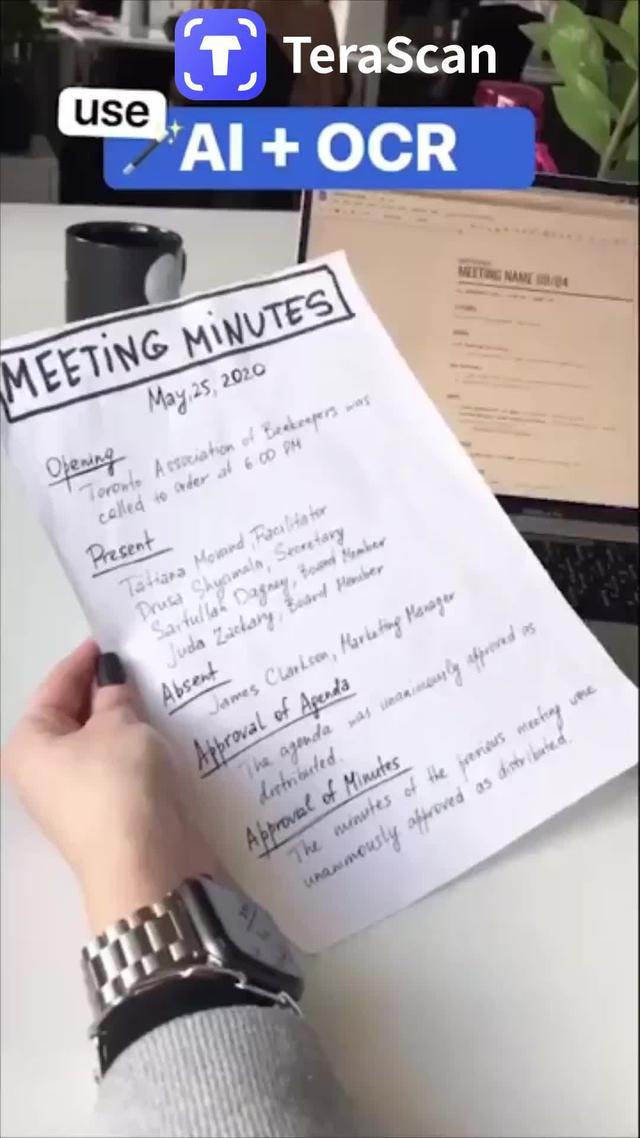 TeraScan
use
AI + OCR
MEETING NAME 09/04
MEETING MINUTES
May, 25, 2020
Opening
Toronto Association of Beekeepers was
called to order at 6:00 PM
Present
Tatiana Morand, Facilitator
Drusa Shyamala, Secretary
Saifullah Dagney, Board Member
Juda Zackary, Board Member
Absent
James Clarkson, Marketing Manager
Approval of Agenda
The agenda was unanimously approved as
distributed.
Approval of Minutes
The minutes of the previous meeting were
unanimously approved as distributed.